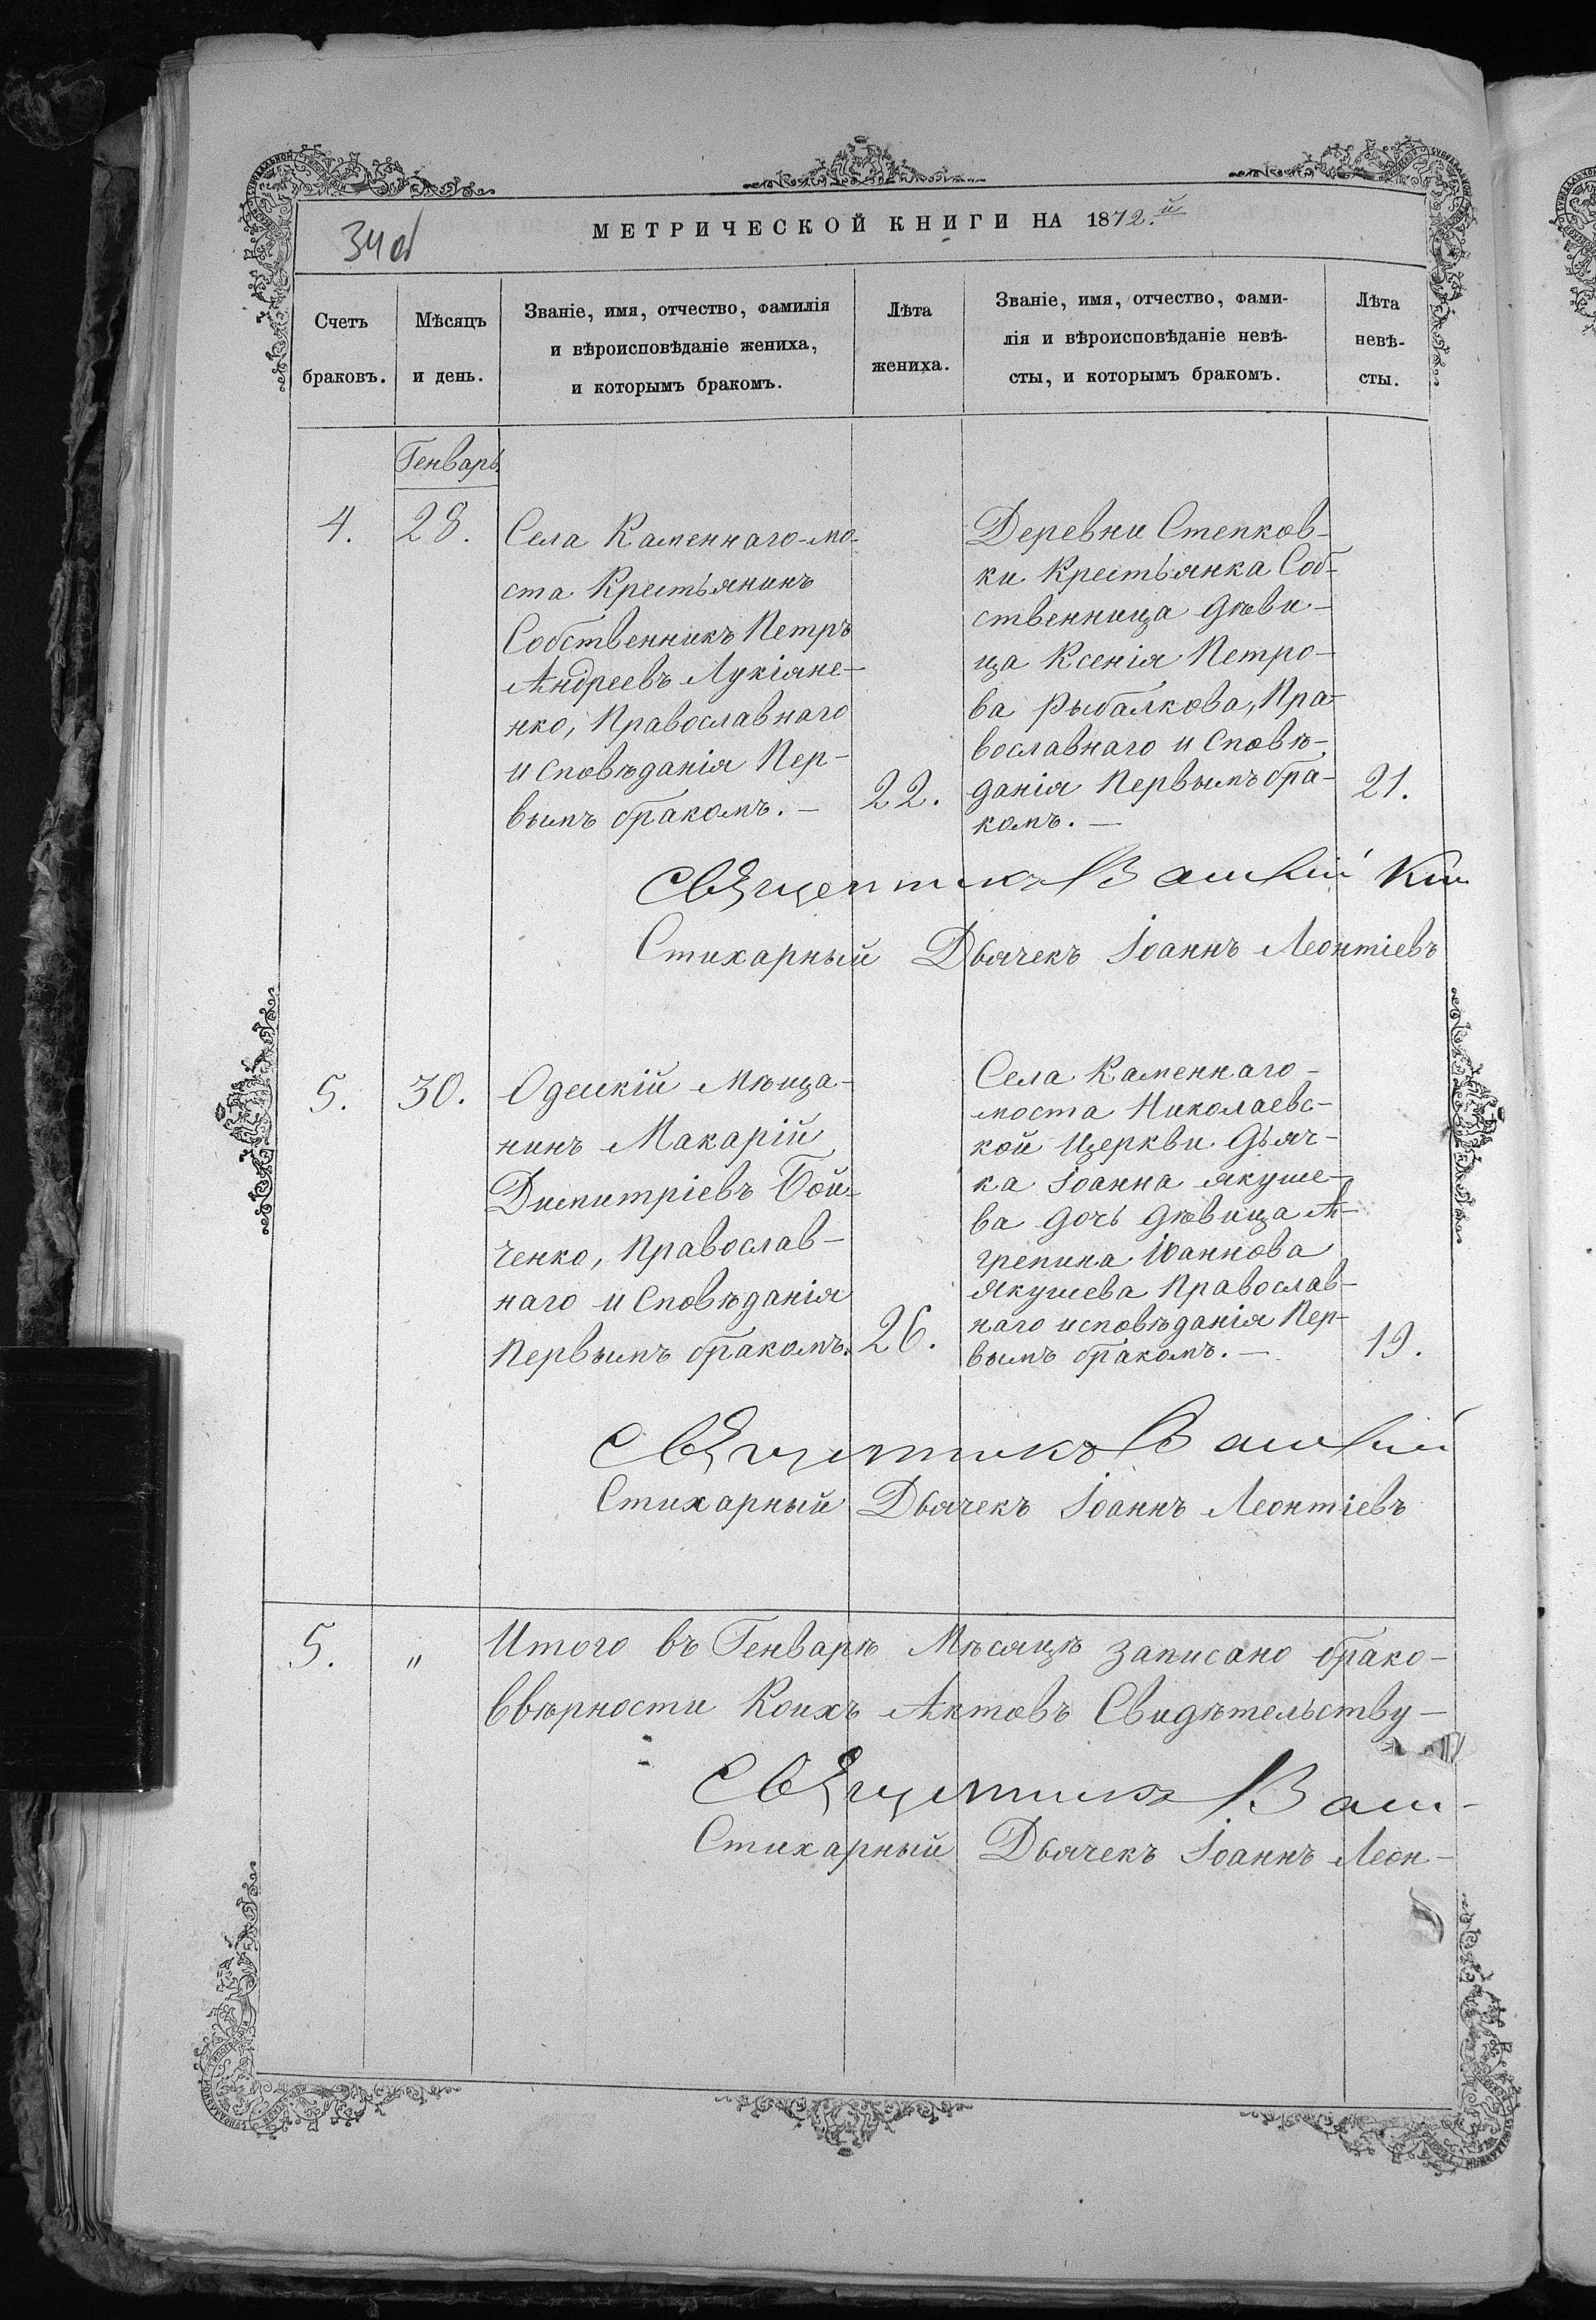 34об
МЕТРИЧЕСКОЙ КНИГИ НА 1872.й
Счетъ браковъ.
Мѣсяцъ и день.
Званіе, имя, отчество, фамилія
и вѣроисповѣданіе жениха,
и которымъ бракомъ.
Лѣта
жениха.
Званіе, имя, отчество, фами-
лія и вѣроисповѣданіе невѣ-
сты, и которымъ бракомъ.
Лѣта
невѣ-
сты.
Генварь
4.
28.
Села Каменнаго-мо-
ста Крестьянинъ
Собственникъ Петръ
Андреевъ Лукіяне-
нко, Православнаго
исповѣданія Пер-
вымъ бракомъ. —
22.
Деревни Степков-
ки Крестьянка Соб-
ственница дѣви-
ца Ксенія Петро-
ва Рыбалкова, Пра-
вославнаго исповѣ-
данія Первымъ бра-
комъ. —
21.
Священникъ Василій
Стихарный Дьячекъ Іоаннъ Леонтіевъ
5.
30.
Одескій Мѣща-
нинъ Макарій
Димитріевъ Бой-
ченко, Православ-
наго исповѣданія
Первымъ бракомъ.
26.
Села Каменнаго-
моста Николаевс-
кой Церкви Дьяч-
ка Іоанна Якуше-
ва дочь дѣвица А-
грепина Іоаннова
Якушева Православ-
наго исповѣданія Пер-
вымъ бракомъ. —
19.
Священникъ Василій
Стихарный Дьячекъ Іоаннъ Леонтіевъ
5.
"
Итого въ Генварѣ Мѣсяцѣ записано брако-
Ввѣрности Коихъ Актовъ Свидѣтельству-
Священникъ Васи-
Стихарный Дьячекъ Іоаннъ Леон-